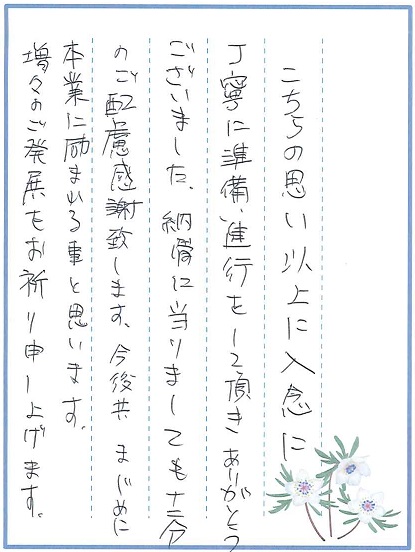 こちらの思い以上に入念に
丁寧に準備、進行をして頂きありがとう
ございました。納骨に当りましても十二分
のご配慮感謝致します。今後共まじめに
本業に励まれる事と思います。
増々のご発展をお祈り申し上げます。